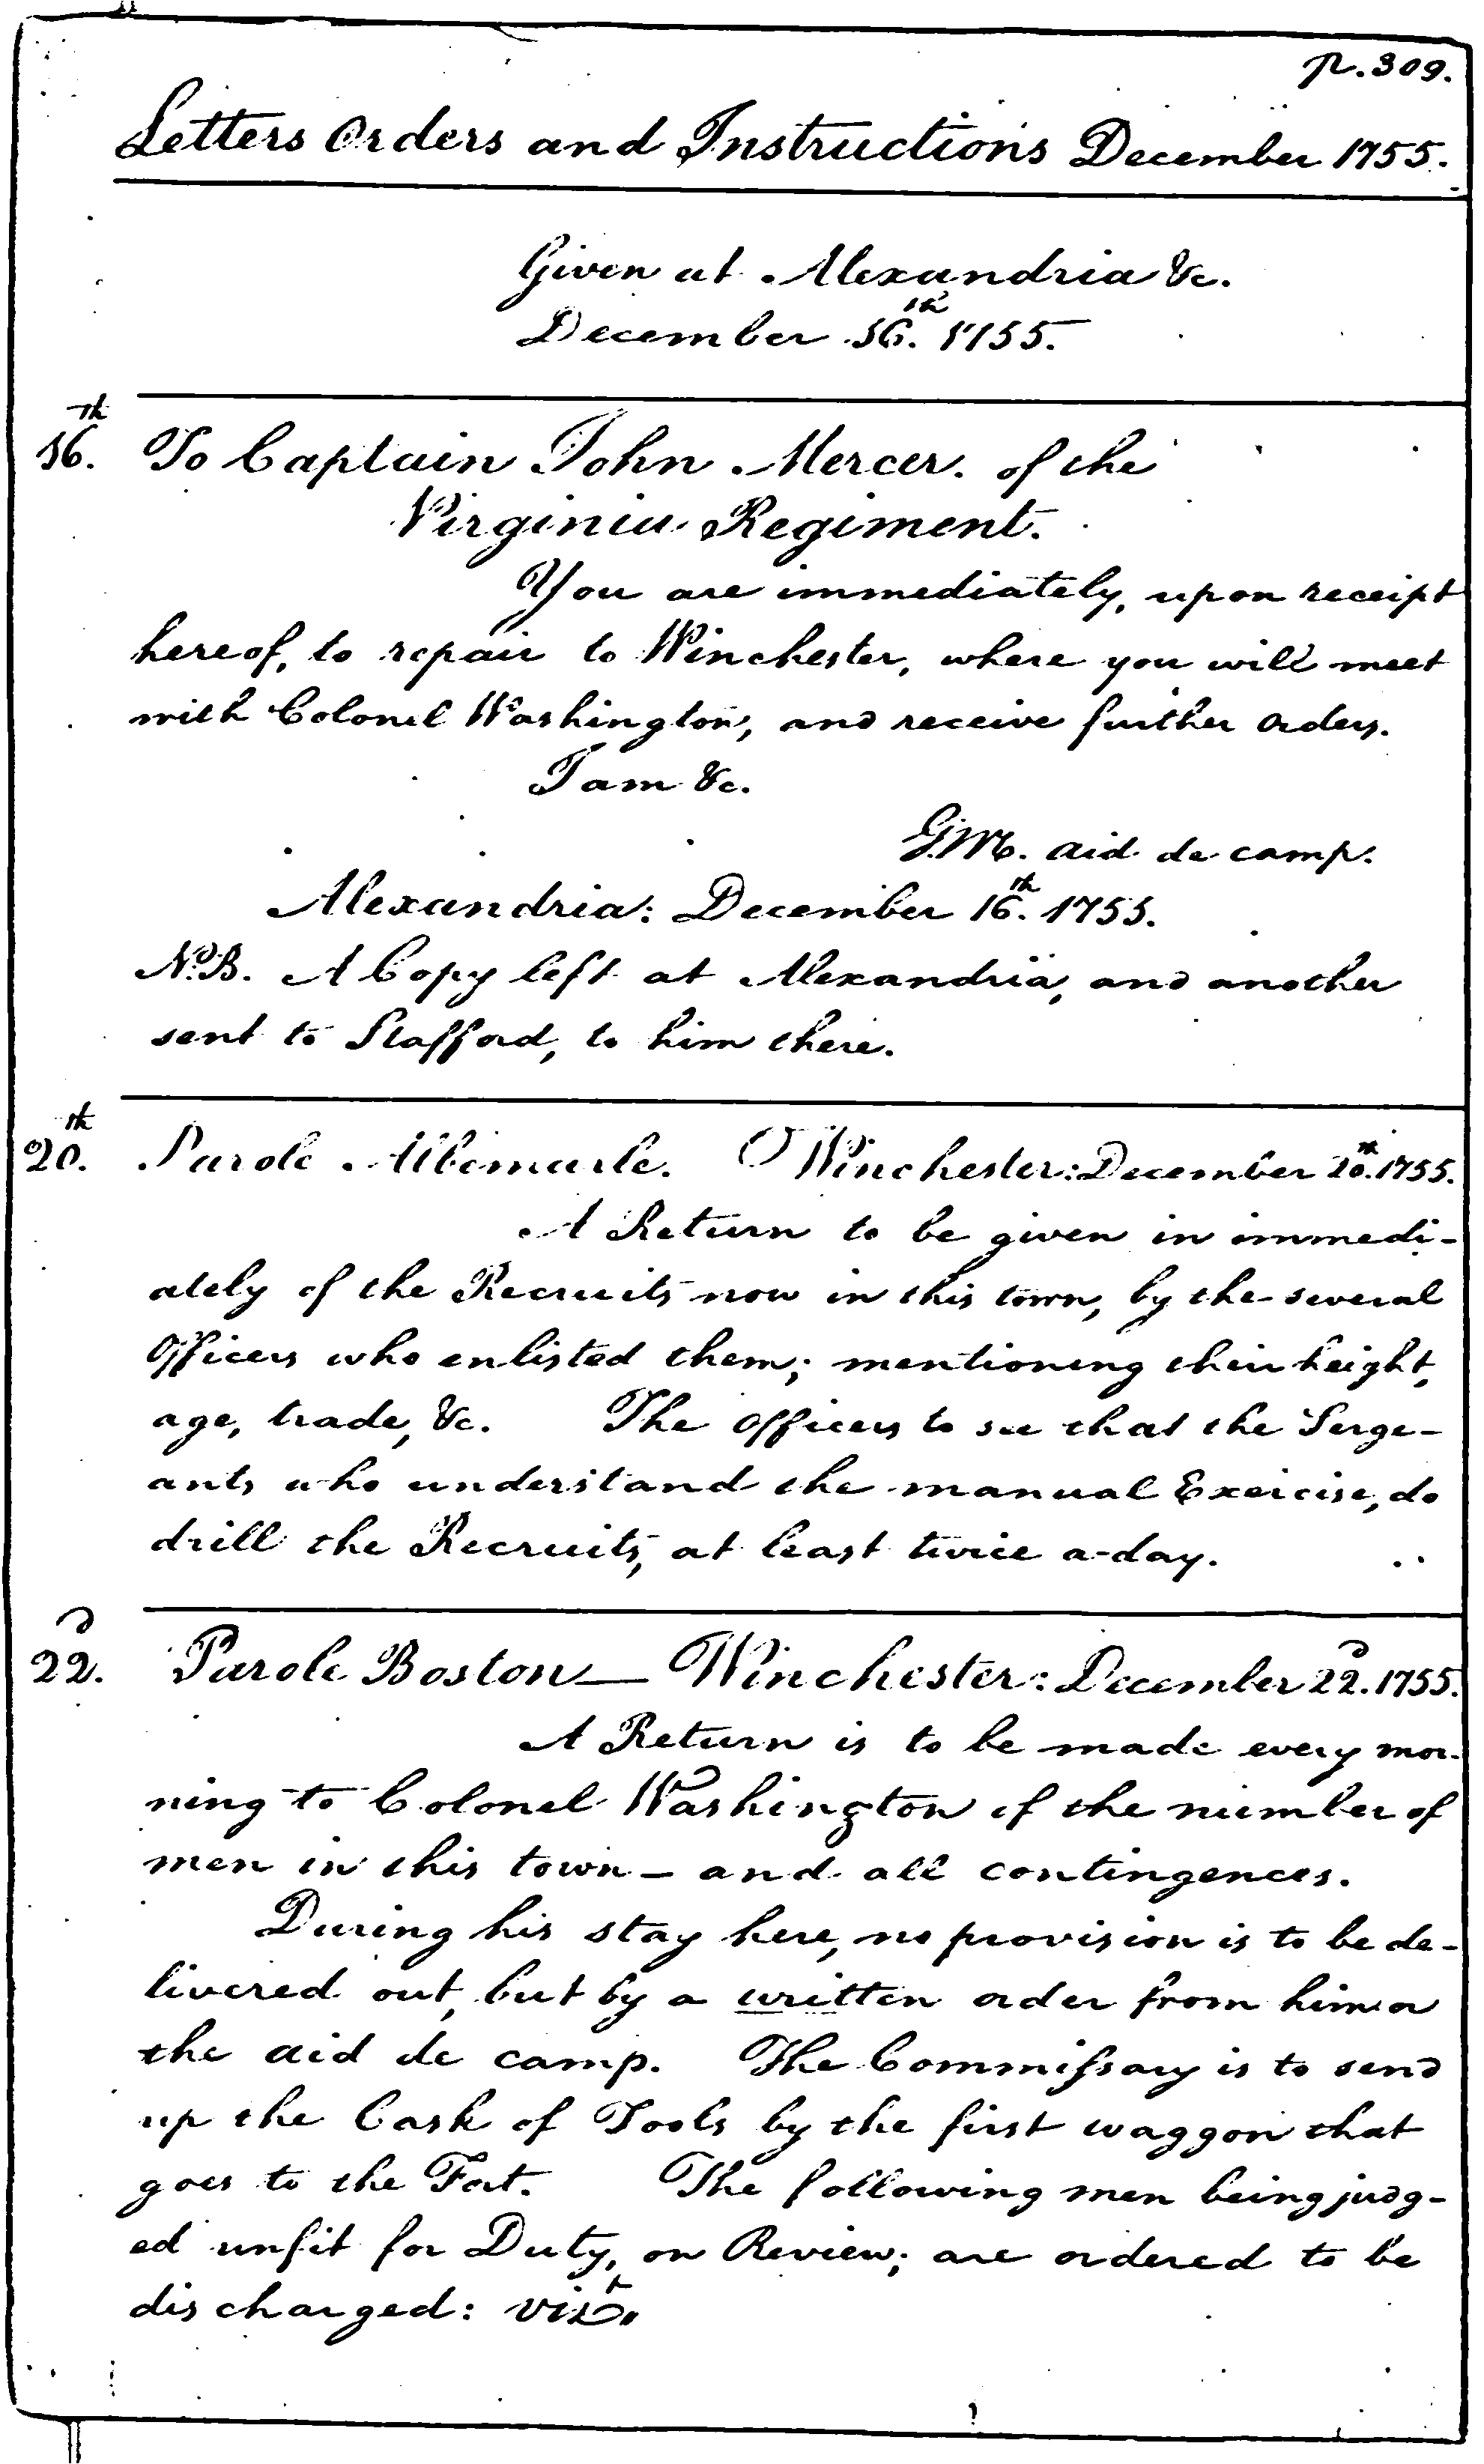 p. 309.
Letters Orders and Instructions December 1755.
Given at Alexandria &c.
December 16.th 1755.
16.th To Captain John Mercer. of the
Virginia Regiment.
You are immediately, upon receipt
hereof, to repair to Winchester, where you will meet
with Colonel Washington, and receive further Orders.
I am &c.
G.M. aid de camp.
Alexandria: December 16.th 1755.
N.B. A Copy left at Alexandria, and another
sent to Stafford, to him there.
20.th Parole Albemarle. Winchester: December 20.th 1755.
A Return to be given in immedi-
ately of the Recruits now in this town, by the several
Officers who enlisted them; mentioning their height,
age, trade, &c. The Officers to see that the Serge-
ants who understand the manual Exercise, do
drill the Recruits, at least twice a-day.
22.d Parole Boston — Winchester: December 22.d 1755.
A Return is to be made every mor-
ning to Colonel Washington of the number of
men in this town — and all contingences.
During his stay here, no provision is to be de-
livered out, but by a written order from him or
the aid de camp. The Commissary is to send
up the Cask of Tools by the first waggon that
goes to the Fort. The following men being judg-
ed unfit for Duty, on Review; are ordered to be
discharged: vizt.